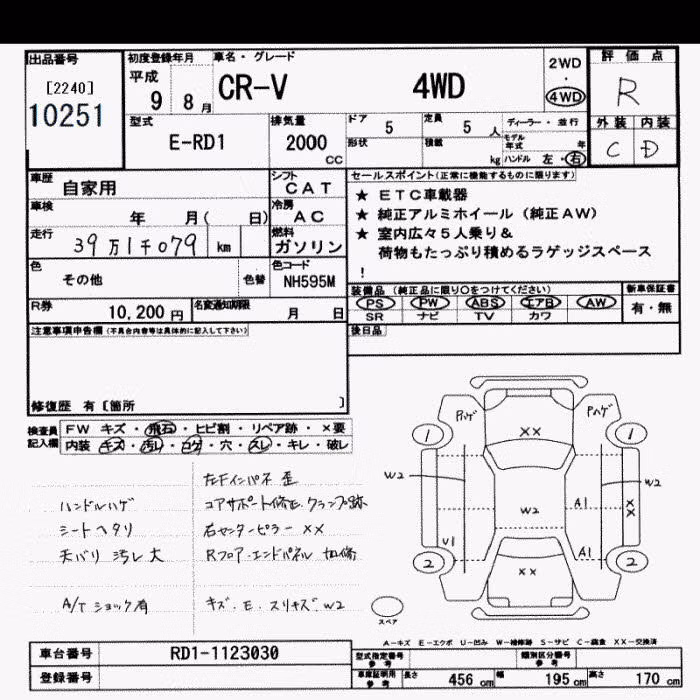 出品番号
[2240]
10251
初度登録年月
平成
9 8月
車名・グレード
CR-V 4WD
2WD
・
4WD
評価点
R
外装 内装
C D
型式
E-RD1
排気量
2000
CC
ドア
5
定員
5 人
形状
積載
kg
ディーラー・並行
モデル年式 年
ハンドル 左・右
車歴
自家用
シフト
CAT
車検
年 月( 日)
冷房
AC
走行
39万1千079 km
燃料
ガソリン
色
その他
色替
色コード
NH595M
R券
10,200円
名変通知期限
月 日
セールスポイント(正常に機能するものに限ります)
★ ETC車載器
★ 純正アルミホイール(純正AW)
★ 室内広々5人乗り&
荷物もたっぷり積めるラゲッジスペース
!
装備品(純正品に限り○をつけてください)
PS PW ABS エアB AW
SR ナビ TV カワ
新車保証書
有・無
後日品
注意事項申告欄(不具合内容等は具体的に記入して下さい)
修復歴 有〔箇所 〕
検査員
記入欄
FW キズ・飛石・ヒビ割・リペア跡・×要
内装 キズ・汚レ・コゲ・穴・スレ・キレ・破レ
左Fインパネ 歪
ハンドルハゲ
コアサポート修正.クランプ跡
シートヘタリ
右センターピラー ××
天バリ 汚レ大
Rフロア・エンドパネル 加修
A/Tショック有
キズ.E.スリキズ.W2
Pハゲ
Pハゲ
××
1
1
W2
W2
W2
A1
××
V1
A1
2
2
××
スペア
A-キズ E-エクボ U-凹み W-補修跡 S-サビ C-腐食 XX-交換済
車台番号
RD1-1123030
登録番号
型式指定番号
参考
類別区分番号
参考
車庫証明用
参考
長さ
456 cm
幅
195 cm
高さ
170 cm